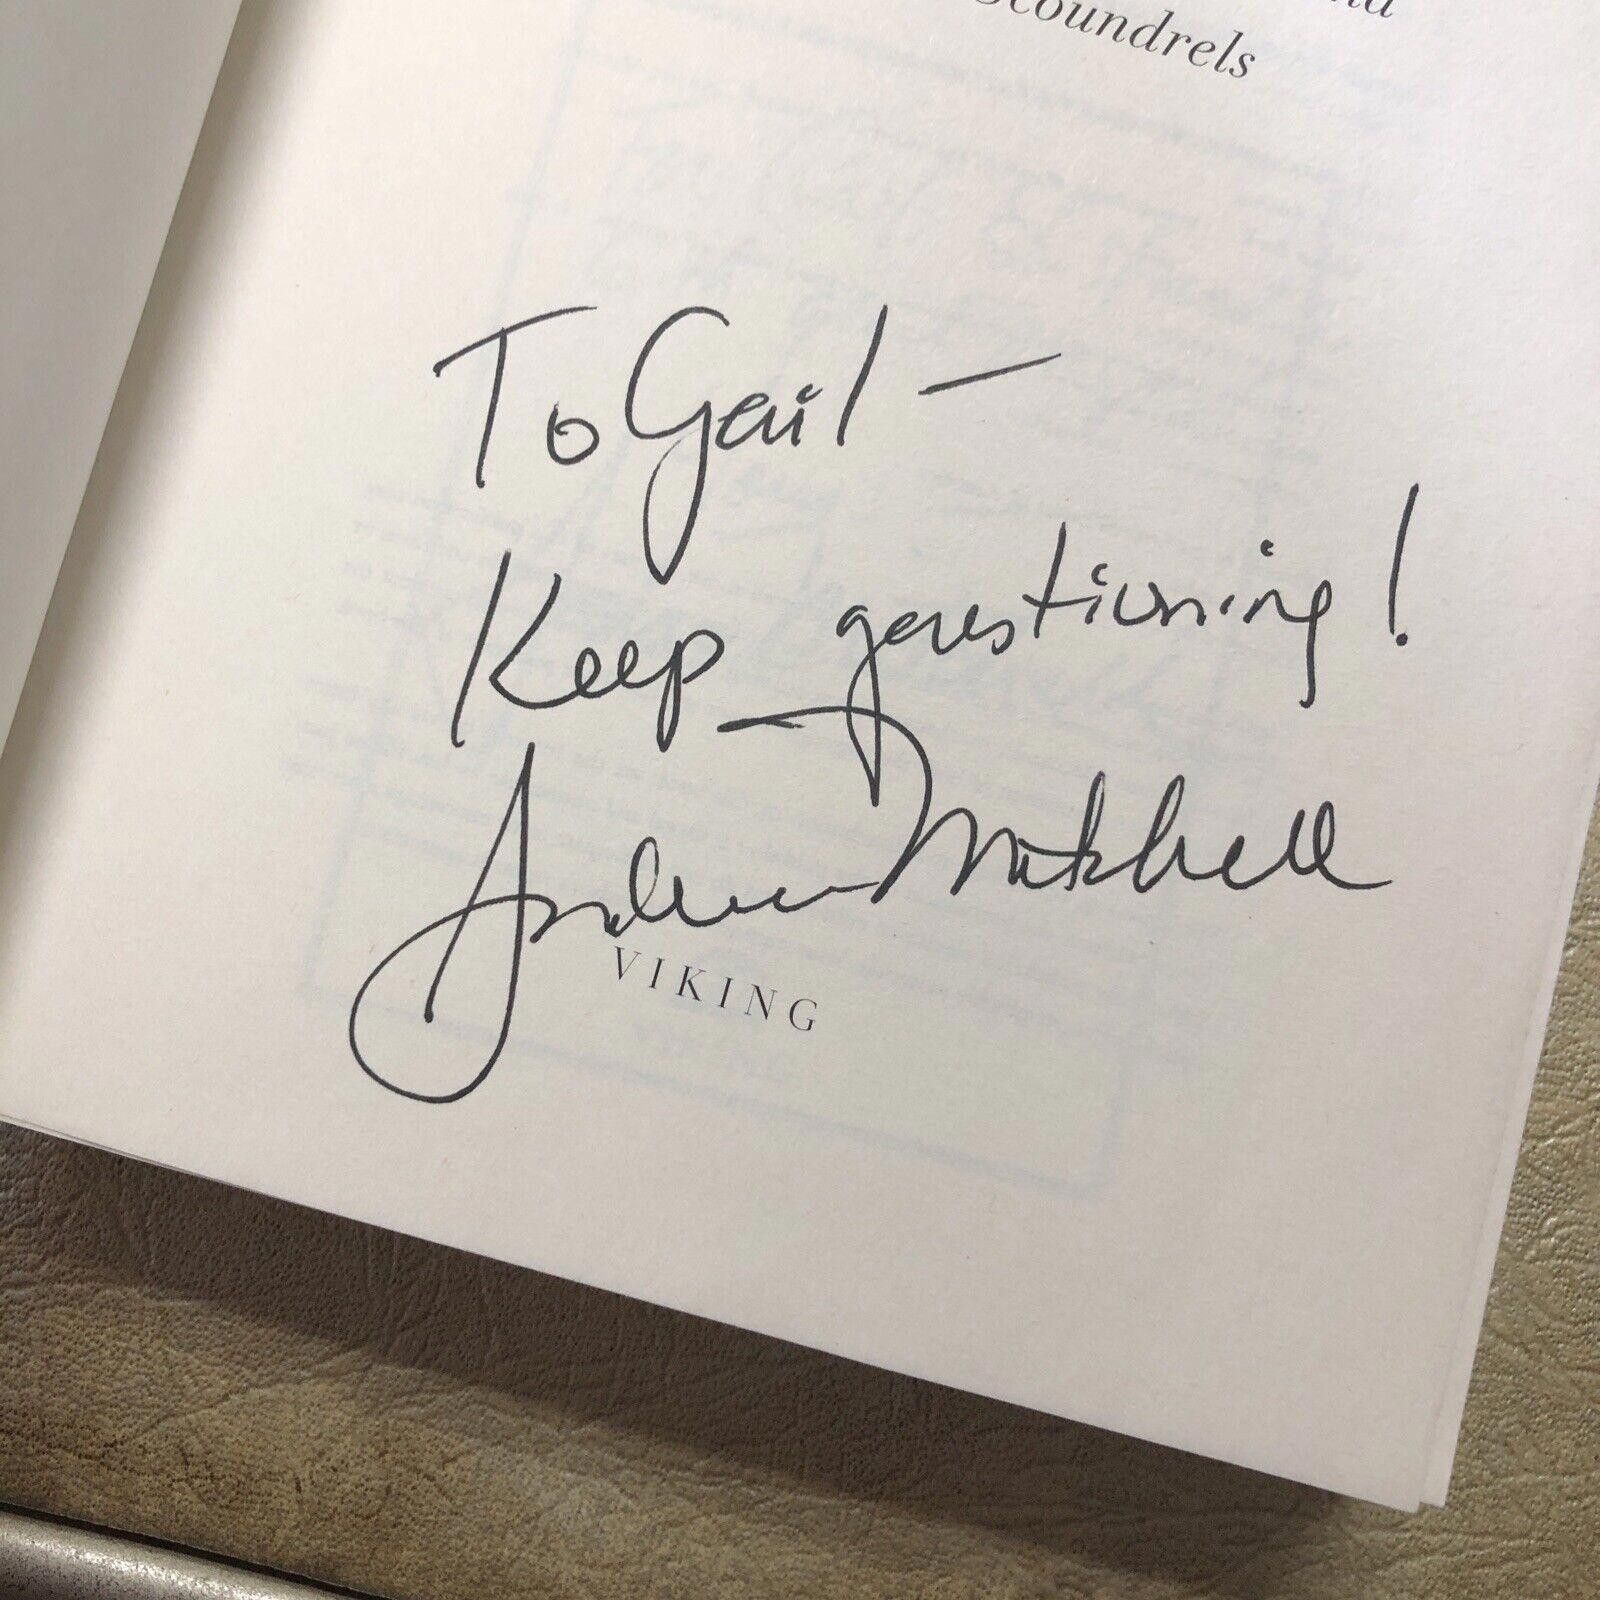 Scoundrels
To Gail —
Keep questioning!
Andrea Mitchell
VIKING